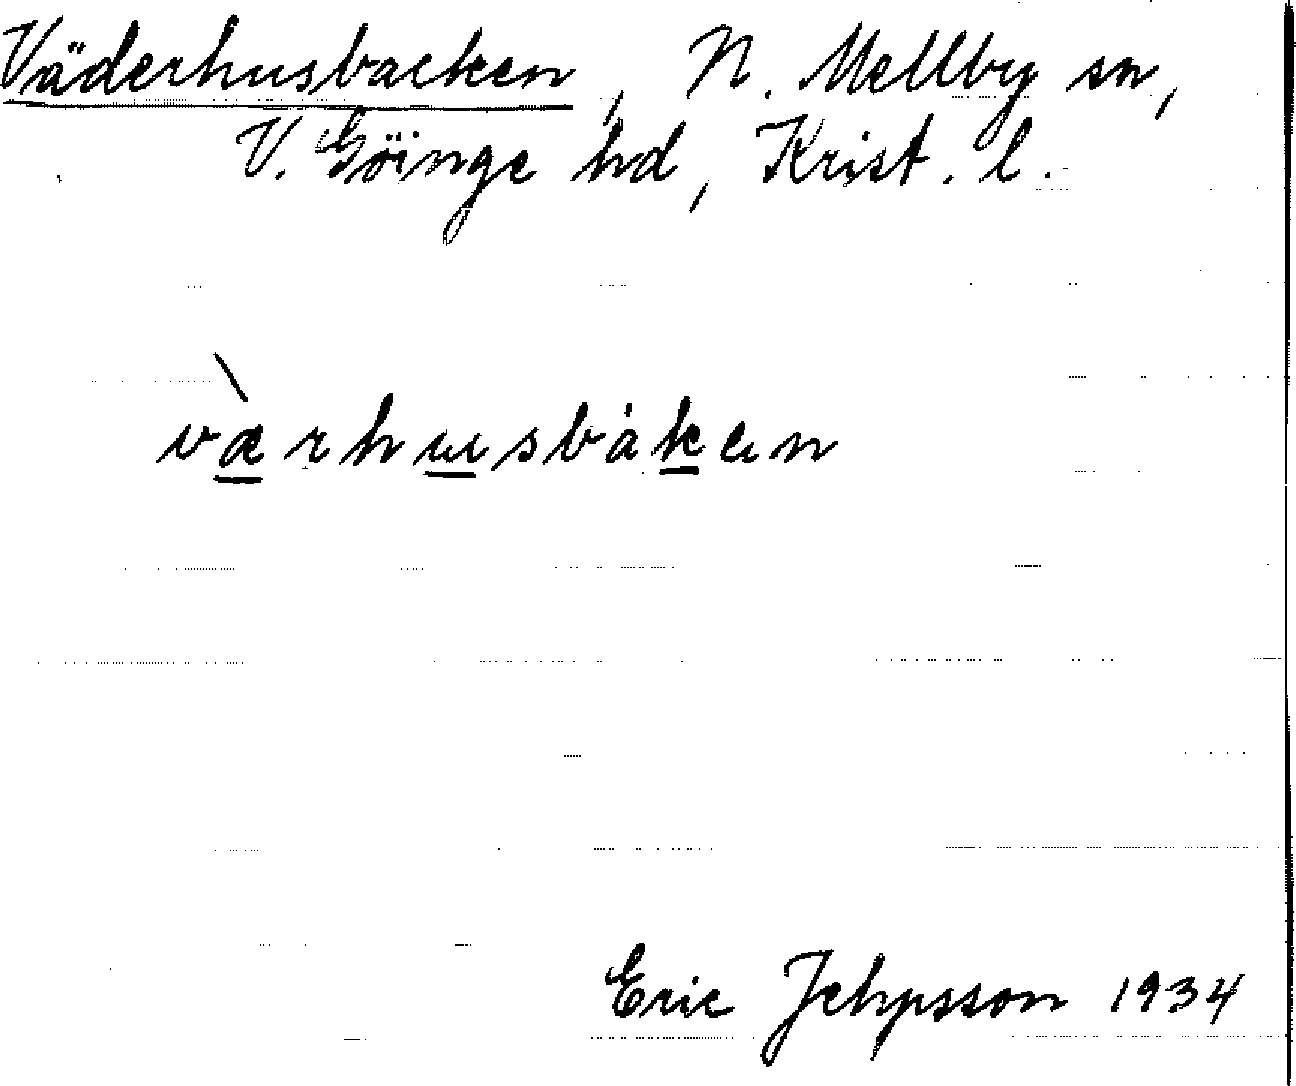 Väderhusbacken, N. Mellby sn,
V. Göinge hd, Krist. l.
værhusbaken
Eric Jehpsson 1934